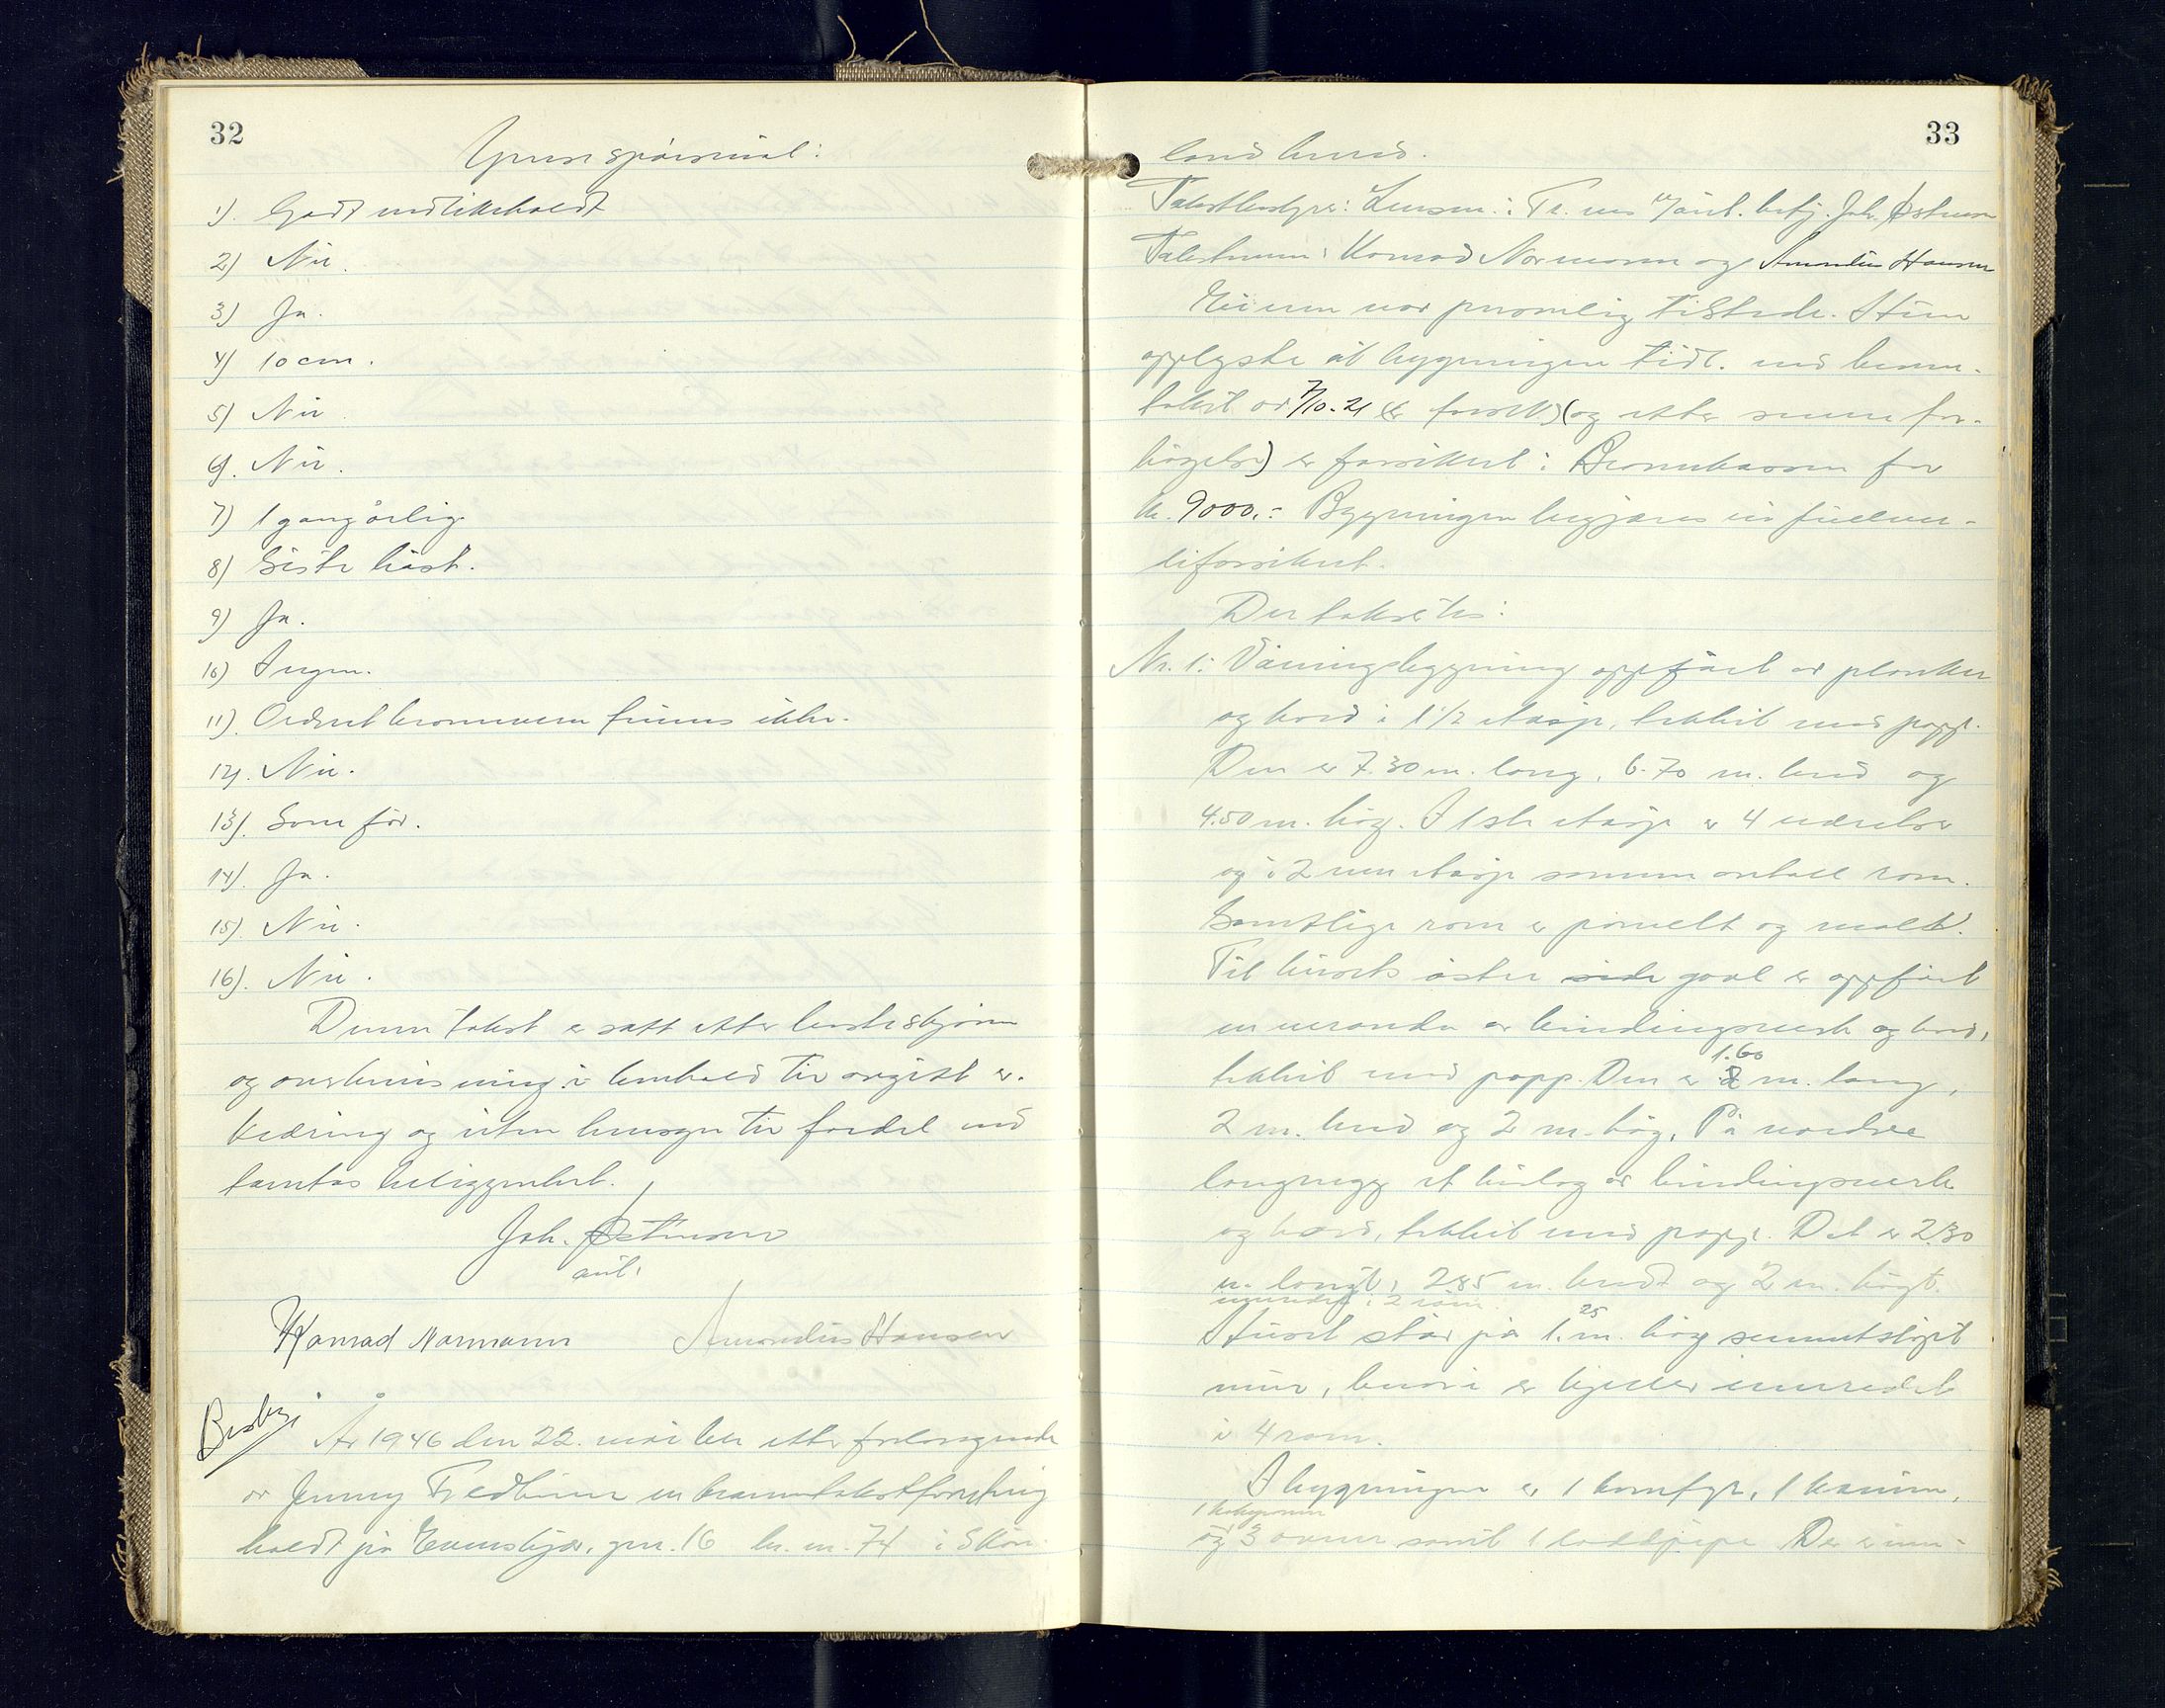 32
spörsmål:
1). Godt vedlikeholdt
2) Nei.
3) Ja.
4) 10 cm.
5) Nei
6). Nei.
7) 1 gang årlig
8) Siste höst.
9) Ja.
10) Ingen.
11). Ordnet brannvern finnes ikke.
12). Nei.
13). Som för.
14). Ja.
15). Nei.
16). Nei.
Denne takst er satt etter beste skjönn
og overbevisning i henhold til avgitt er-
klæring og uten hensyn til fordel ved
tomtas beliggenhet.
Joh. Østensen
aut.
Konrad Normann Amandus Hansen
Beskj.
År 1946 den 22. mai ble etter forlangende
av Jenny Fredheim en branntakstforretning
holdt på Evenskjær, gnr. 16 br. nr. 74 i Skån-
33
land herred.
Takstbestyrer: Lensm. i Tr. ved aut. betj. Joh. Østensen
Takstmenn: Konrad Normann og Amandus Hansen
Eieren var personlig tilstede. Hun
opplyste at bygningen tidl. ved brann-
takst av 7/10-21 (og etter senere for-
höyelse) er forsikret i Brannkassen for
kr. 9000.- Bygningen begjæres nu fullver-
diforsikret.
Der takseres:
Nr. 1: Våningsbygning oppfört av planker
og bord i 1 1/2 etasje, tekket med papp.
Den er 7.30 m. lang, 6.70 m. bred og
4.50 m. höy. I 1ste etasje er 4 værelser
og i 2nen etasje samme antall rom.
Samtlige rom er panelt og malt.
Til husets östre side gavl er oppfört
en veranda av bindingsverk og bord,
tekket med papp. Den er 1.60 m. lang,
2 m. bred og 2 m. höy. På nordre
langvegg et bislag av bindingsverk
og bord, tekket med papp. Det er 2.30
m. langt, 2.85 m. bredt og 2 m. höyt.
innredet i 2 rom.
Huset står på 1.25 m. höy sementstöpt
mur, hvori er kjeller innredet
i 4 rom.
I bygningen er 1 komfyr, 1 kamin,
og 3 ovner samt 1 loddpipe Der er inn-